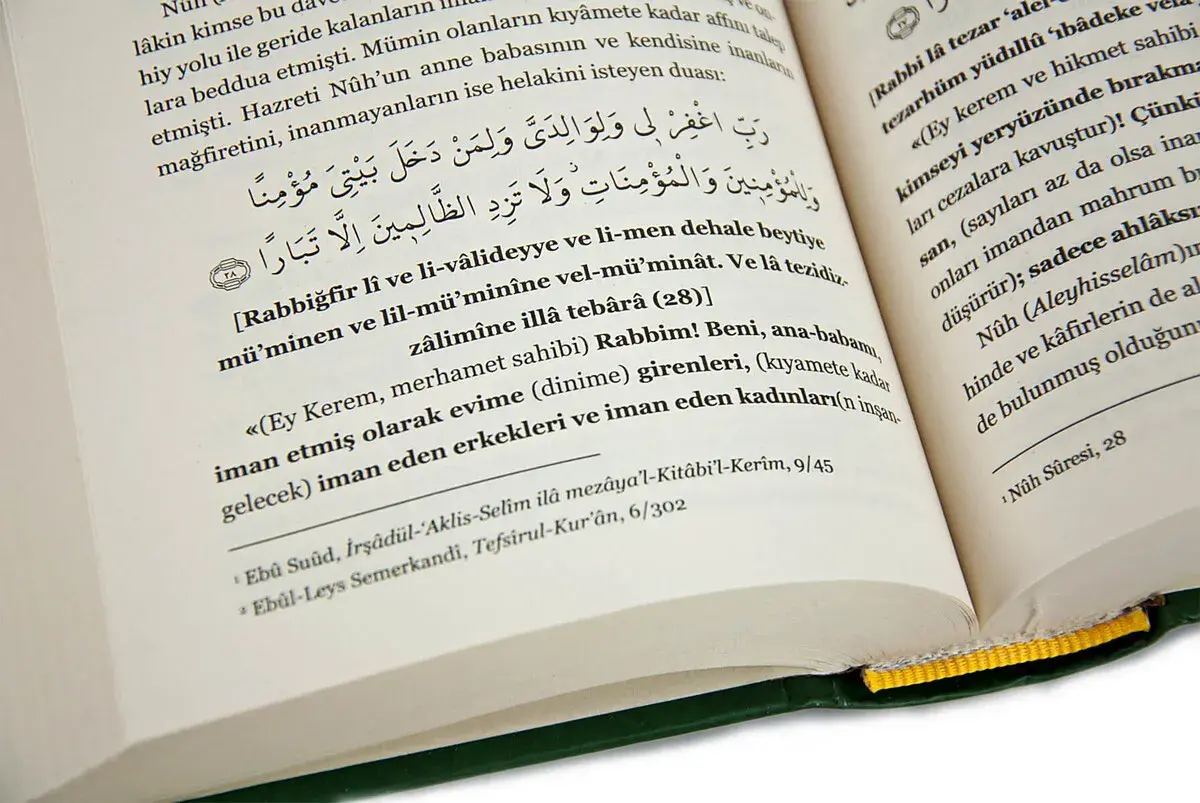 Nûh
lâkin kimse bu
hiy yolu ile geride kalanların
lara beddua etmişti. Mümin olanların kıyâmete kadar affını talep
etmişti. Hazreti Nûh’un anne babasının ve kendisine inanların
mağfiretini, inanmayanların ise helakini isteyen duası:
رَبِّ اغْفِرْ لٖى وَلِوَالِدَىَّ وَلِمَنْ دَخَلَ بَيْتِىَ مُؤْمِنًا
وَلِلْمُؤْمِنٖينَ وَالْمُؤْمِنَاتِۜ وَلَا تَزِدِ الظَّالِمٖينَ اِلَّا تَبَارًا ﴿٢٨﴾
[Rabbiğfir lî ve li-vâlideyye ve li-men dehale beytiye
mü’minen ve lil-mü’minîne vel-mü’minât. Ve lâ tezidiz-
zâlimîne illâ tebârâ (28)]
«(Ey Kerem, merhamet sahibi) Rabbim! Beni, ana-babamı,
iman etmiş olarak evime (dinime) girenleri, (kıyamete kadar
gelecek) iman eden erkekleri ve iman eden kadınları(n inşan-
¹ Ebû Suûd, İrşâdül-‘Aklis-Selîm ilâ mezâya’l-Kitâbi’l-Kerîm, 9/45
² Ebûl-Leys Semerkandî, Tefsîrul-Kur’ân, 6/302
[Rabbi lâ tezar ‘alel-
tezarhüm yüdıllû ‘ıbâdeke velâ
«(Ey kerem ve hikmet sahibi
kimseyi yeryüzünde bırakma
ları cezalara kavuştur)! Çünki
san, (sayıları az da olsa inan
onları imandan mahrum bı
düşürür); sadece ahlâksız
Nûh (Aleyhisselâm)ın
hinde ve kâfirlerin de al
de bulunmuş olduğun
¹ Nûh Sûresi, 28